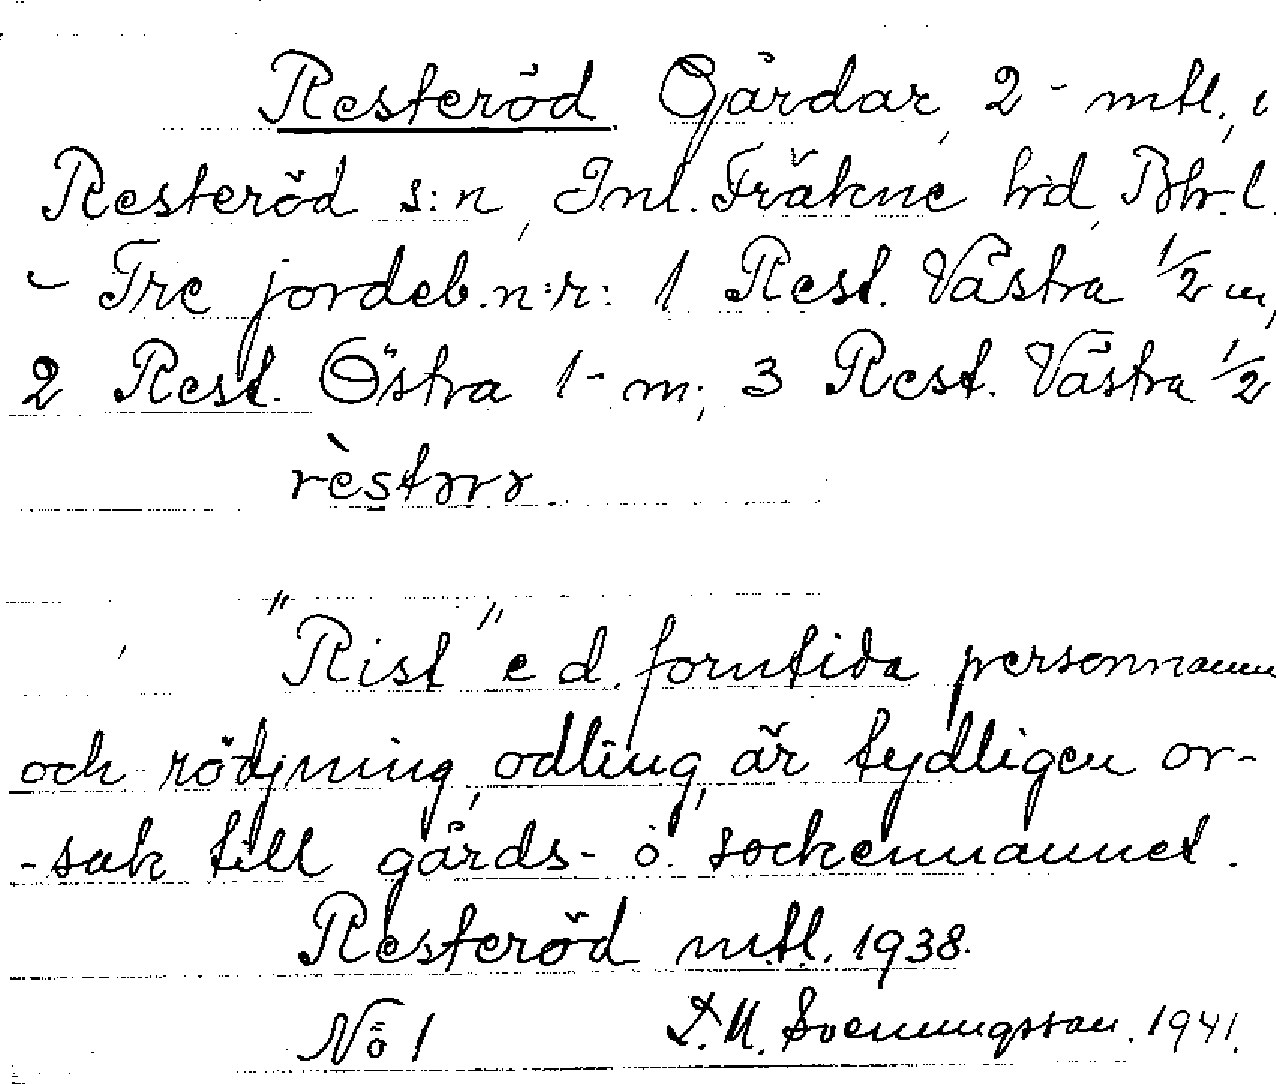 Resteröd Gårdar, 2 - mtl., i
Resteröd s:n, Inl. Fräkne hd, Bh. l.
- Tre jordeb.n:r: 1 Rest. Västra 1/2 m,
2 Rest. Östra 1 - m; 3 Rest. Västra 1/2
rèstərə.
"Rist" e d. forntida personnamn
och rödjning, odling, är tydligen or-
-sak till gårds- o. sockennamnet.
Resteröd mtl. 1938.
No 1 D.M. Svenningsson. 1941.